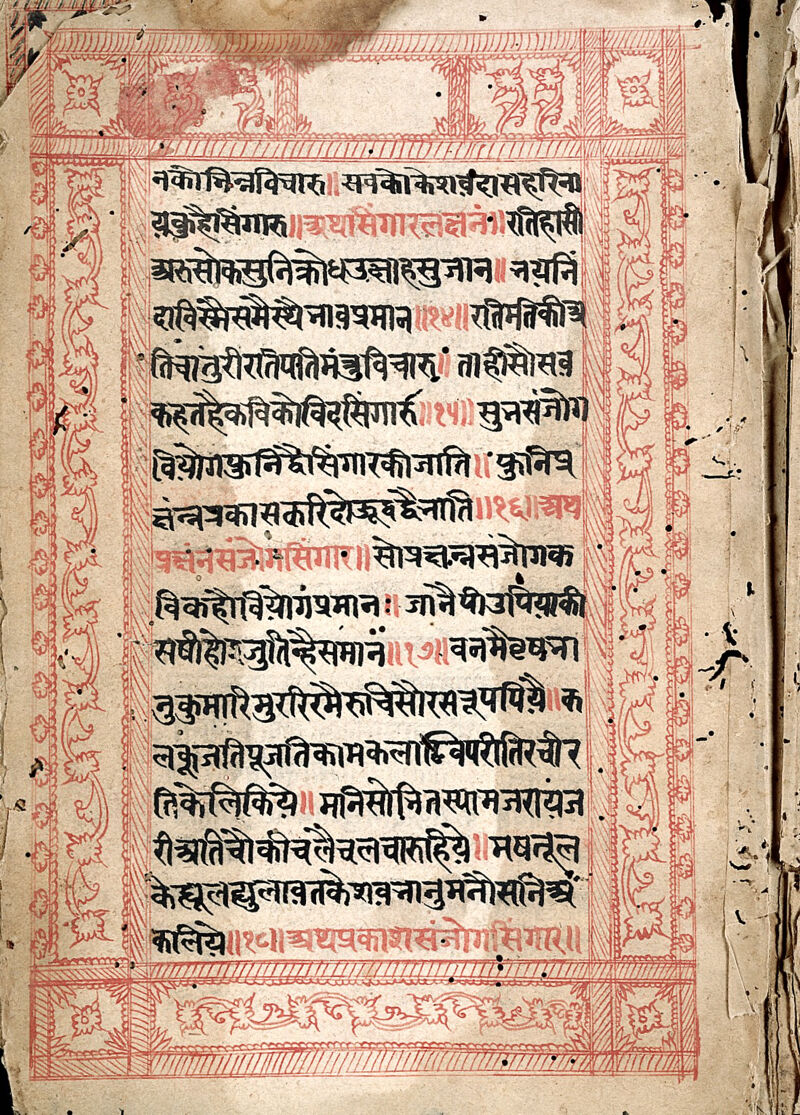 नकौभिन्नविचारु॥सबकोकेशवदासहरिना
यकुहैसिंगारु॥अथसिंगारलछनं॥रतिहासी
अरुसोकसुनिक्रोधउछाहसुजान॥नयनिं
दाविस्मैसमैस्थैनावप्रमान॥१४॥रतिमतिकीअ
तिचातुरीरतिपतिमंत्रुविचारु॥ताहीसौसब
कहतहैकविकोविदसिंगारु॥१५॥सुनसंजोग
वियोगफुनिद्वैसिंगारकीजाति॥फुनिप्र
छंन्नप्रकासकरिदोऊवद्वैनाति॥१६॥अथ
प्रछंनसंजोगसिंगार॥सोप्रछन्नसंजोगक
विकहौवियोगप्रमान॥जानैपीउपियाकी
सषीहोइजुतिन्हैसमानं॥१७॥वनमैवृषना
नुकुमारिमुरारिरमैरुचिसौरसरूपपियै॥क
लकूजतिपूजतिकामकलाविपरीतिरचीर
तिकेलिकिये॥मनिसोभितस्यामजरायज
रीअतिचौकीचलैचलचारुहिये॥मषतूल
केझूलझुलावतकेशवनानुमनौसनिअं
कलिये॥१८॥अथप्रकाशसंजोगसिंगार॥